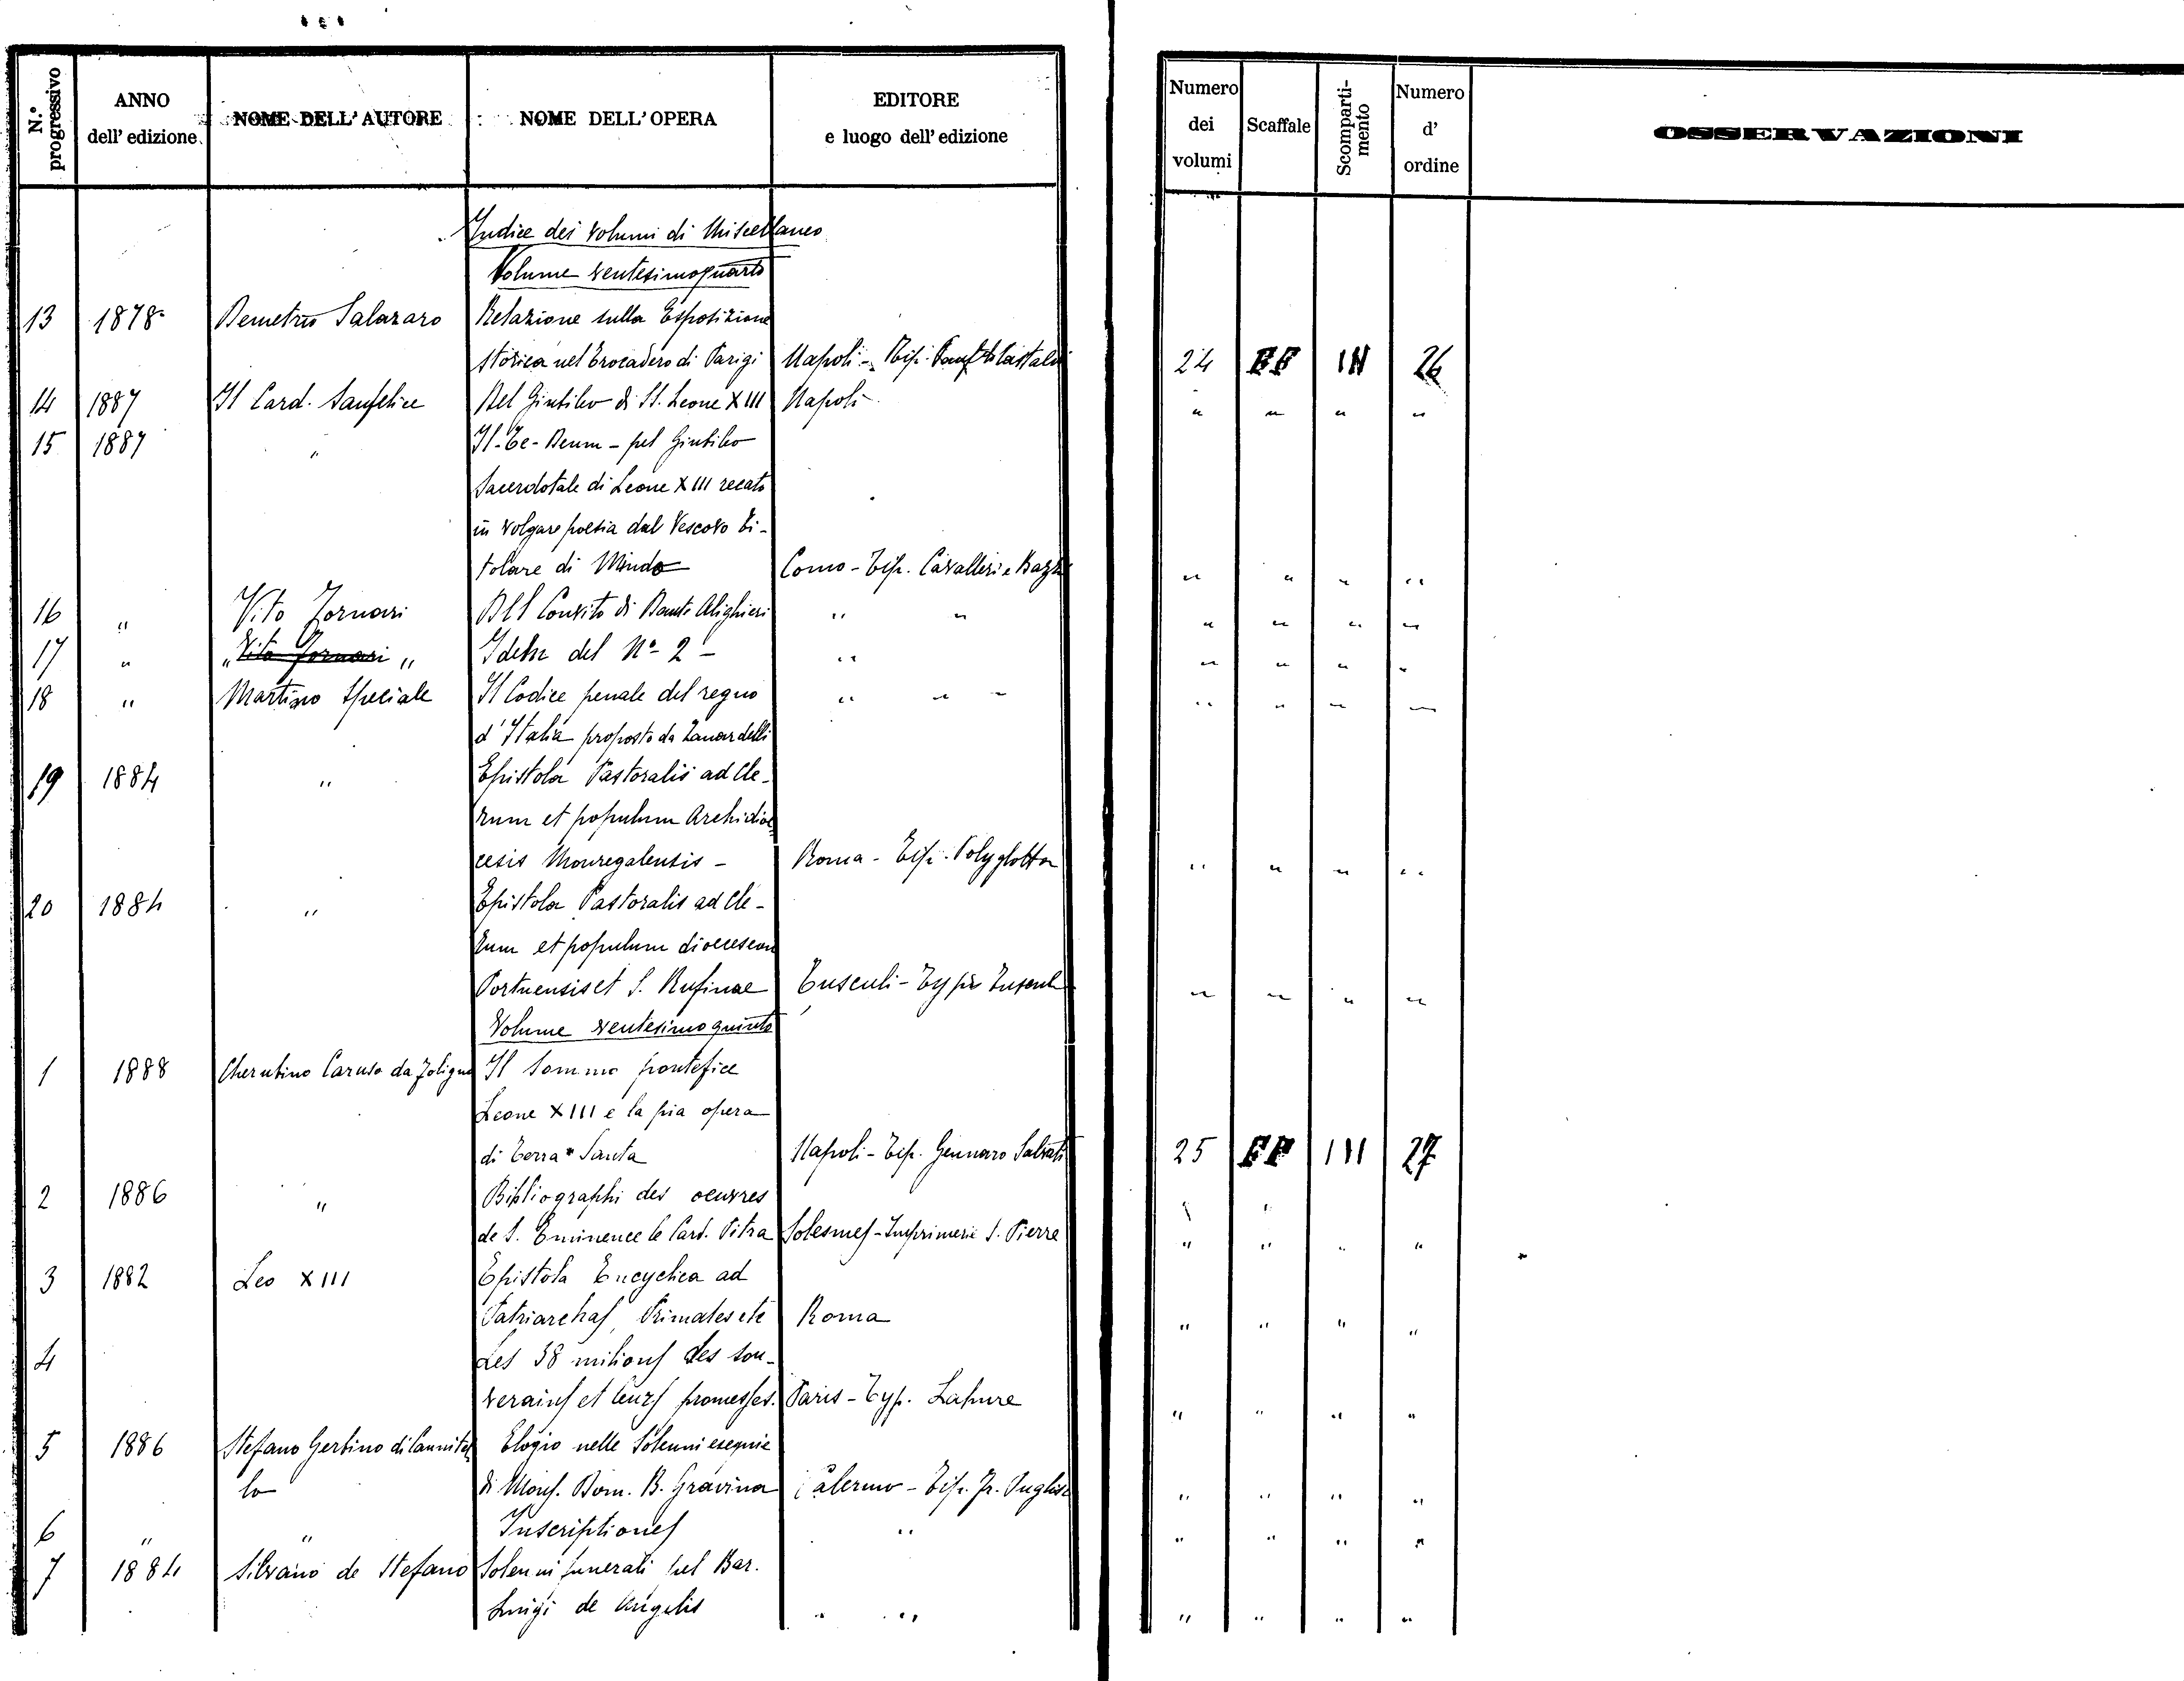 N.° progressivo | ANNO dell' edizione | NOME DELL' AUTORE | NOME DELL' OPERA | EDITORE e luogo dell' edizione | Numero dei volumi | Scaffale | Scomparti-mento | Numero d' ordine | OSSERVAZIONI
Indice dei volumi di Miscellanea
Volume ventesimoquarto
13 1878 Demetrio Salazaro Relazione sulla Esposizione
storica nel Trocadero di Parigi Napoli - Tip. 24 III 26
14 1887 Il Card. Sanfelice Nel Giubileo di S.S. Leone XIII Napoli " " " "
15 1887 " Il - Te - Deum - pel Giubileo
Sacerdotale di Leone XIII recato
in volgare poesia dal Vescovo ti-
tolare di Mindo Como - Tip. Cavalleri e Bazzi " " " "
16 " Vito Fornari Del Convito di Dante Alighieri " " " " " "
17 " " Vito Fornari " Idem del N° 2 - " " " " "
18 " Martino Speciale Il Codice penale del regno " " " " " " "
d'Italia proposto da Zanardelli
19 1884 " Epistola Pastoralis ad Cle-
rum et populum Archidioe
cesis Monregalensis - Roma - Tip. Polyglotta " " " "
20 1884 " Epistola Pastoralis ad Cle-
rum et populum dioeceseon
Portuensis et S. Rufinae Tusculi - Typis Tuscul " " " "
Volume ventesimo quinto
1 1888 Cherubino Caruso da Foligno Il sommo pontefice
Leone XIII e la pia opera
di Terra Santa Napoli - Tip. Gennaro Salvati 25 III 27
2 1886 " Bibliographi des oeuvres
de S. Eminence le Card. Pitra Solesmes - Imprimerie S. Pierre " " " "
3 1882 Leo XIII Epistola Encyclica ad
Patriarchas, Primates etc Roma " " " "
4 Les 38 milions des sou-
verains et leurs promesses. Paris - Typ. Lahure " " " "
5 1886 Stefano Gerbino di Cannitel Elogio nelle Solenni esequie
lo di Mons. Dom. B. Gravina Palermo - Tip. Fr. Puglisi " " " "
6 " " Inscriptiones " " " " "
7 1884 Silvano de Stefano Solenni funerali pel Bar.
Luigi de Angelis " " " " " "